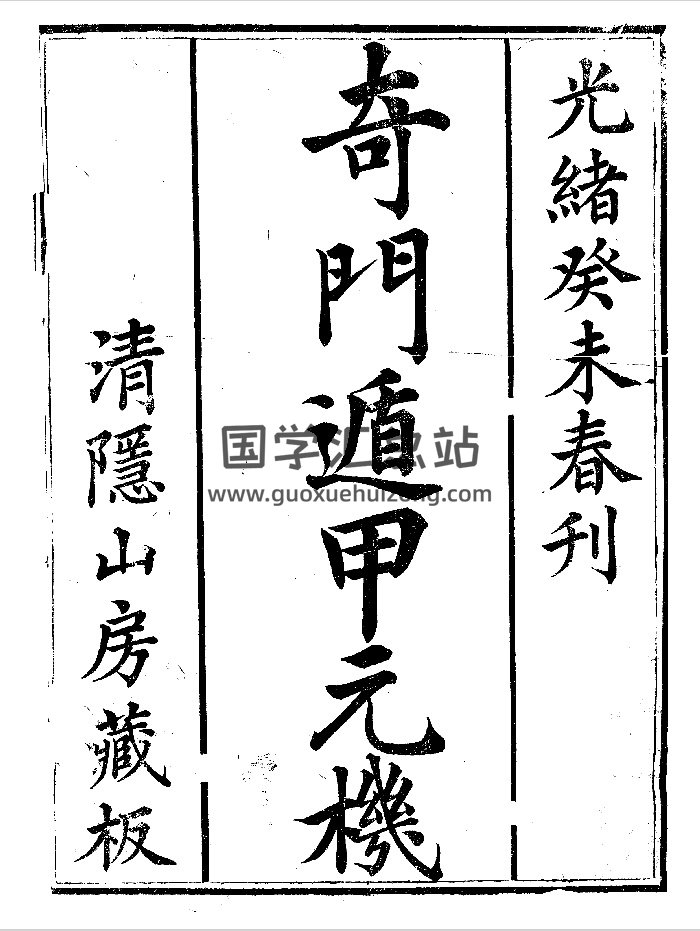 光緒癸未春刊
奇門遁甲元機
清隱山房藏板
国学汇 站
www.guoxuehuizong.com